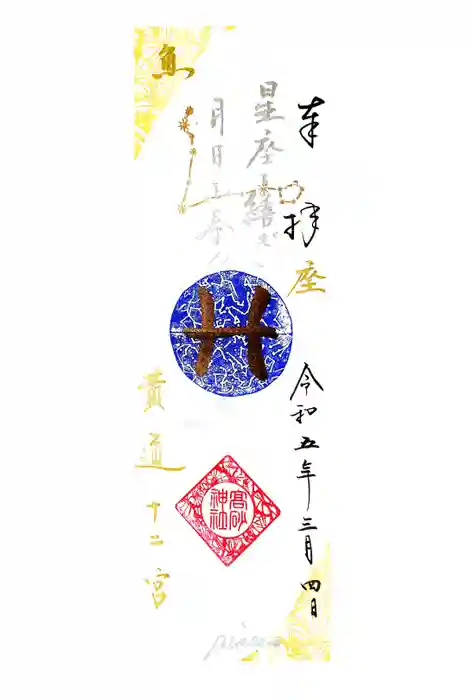 奉拝
令和五年三月四日
魚
座
星座を結び
月日
黄道十二宮
高砂神社